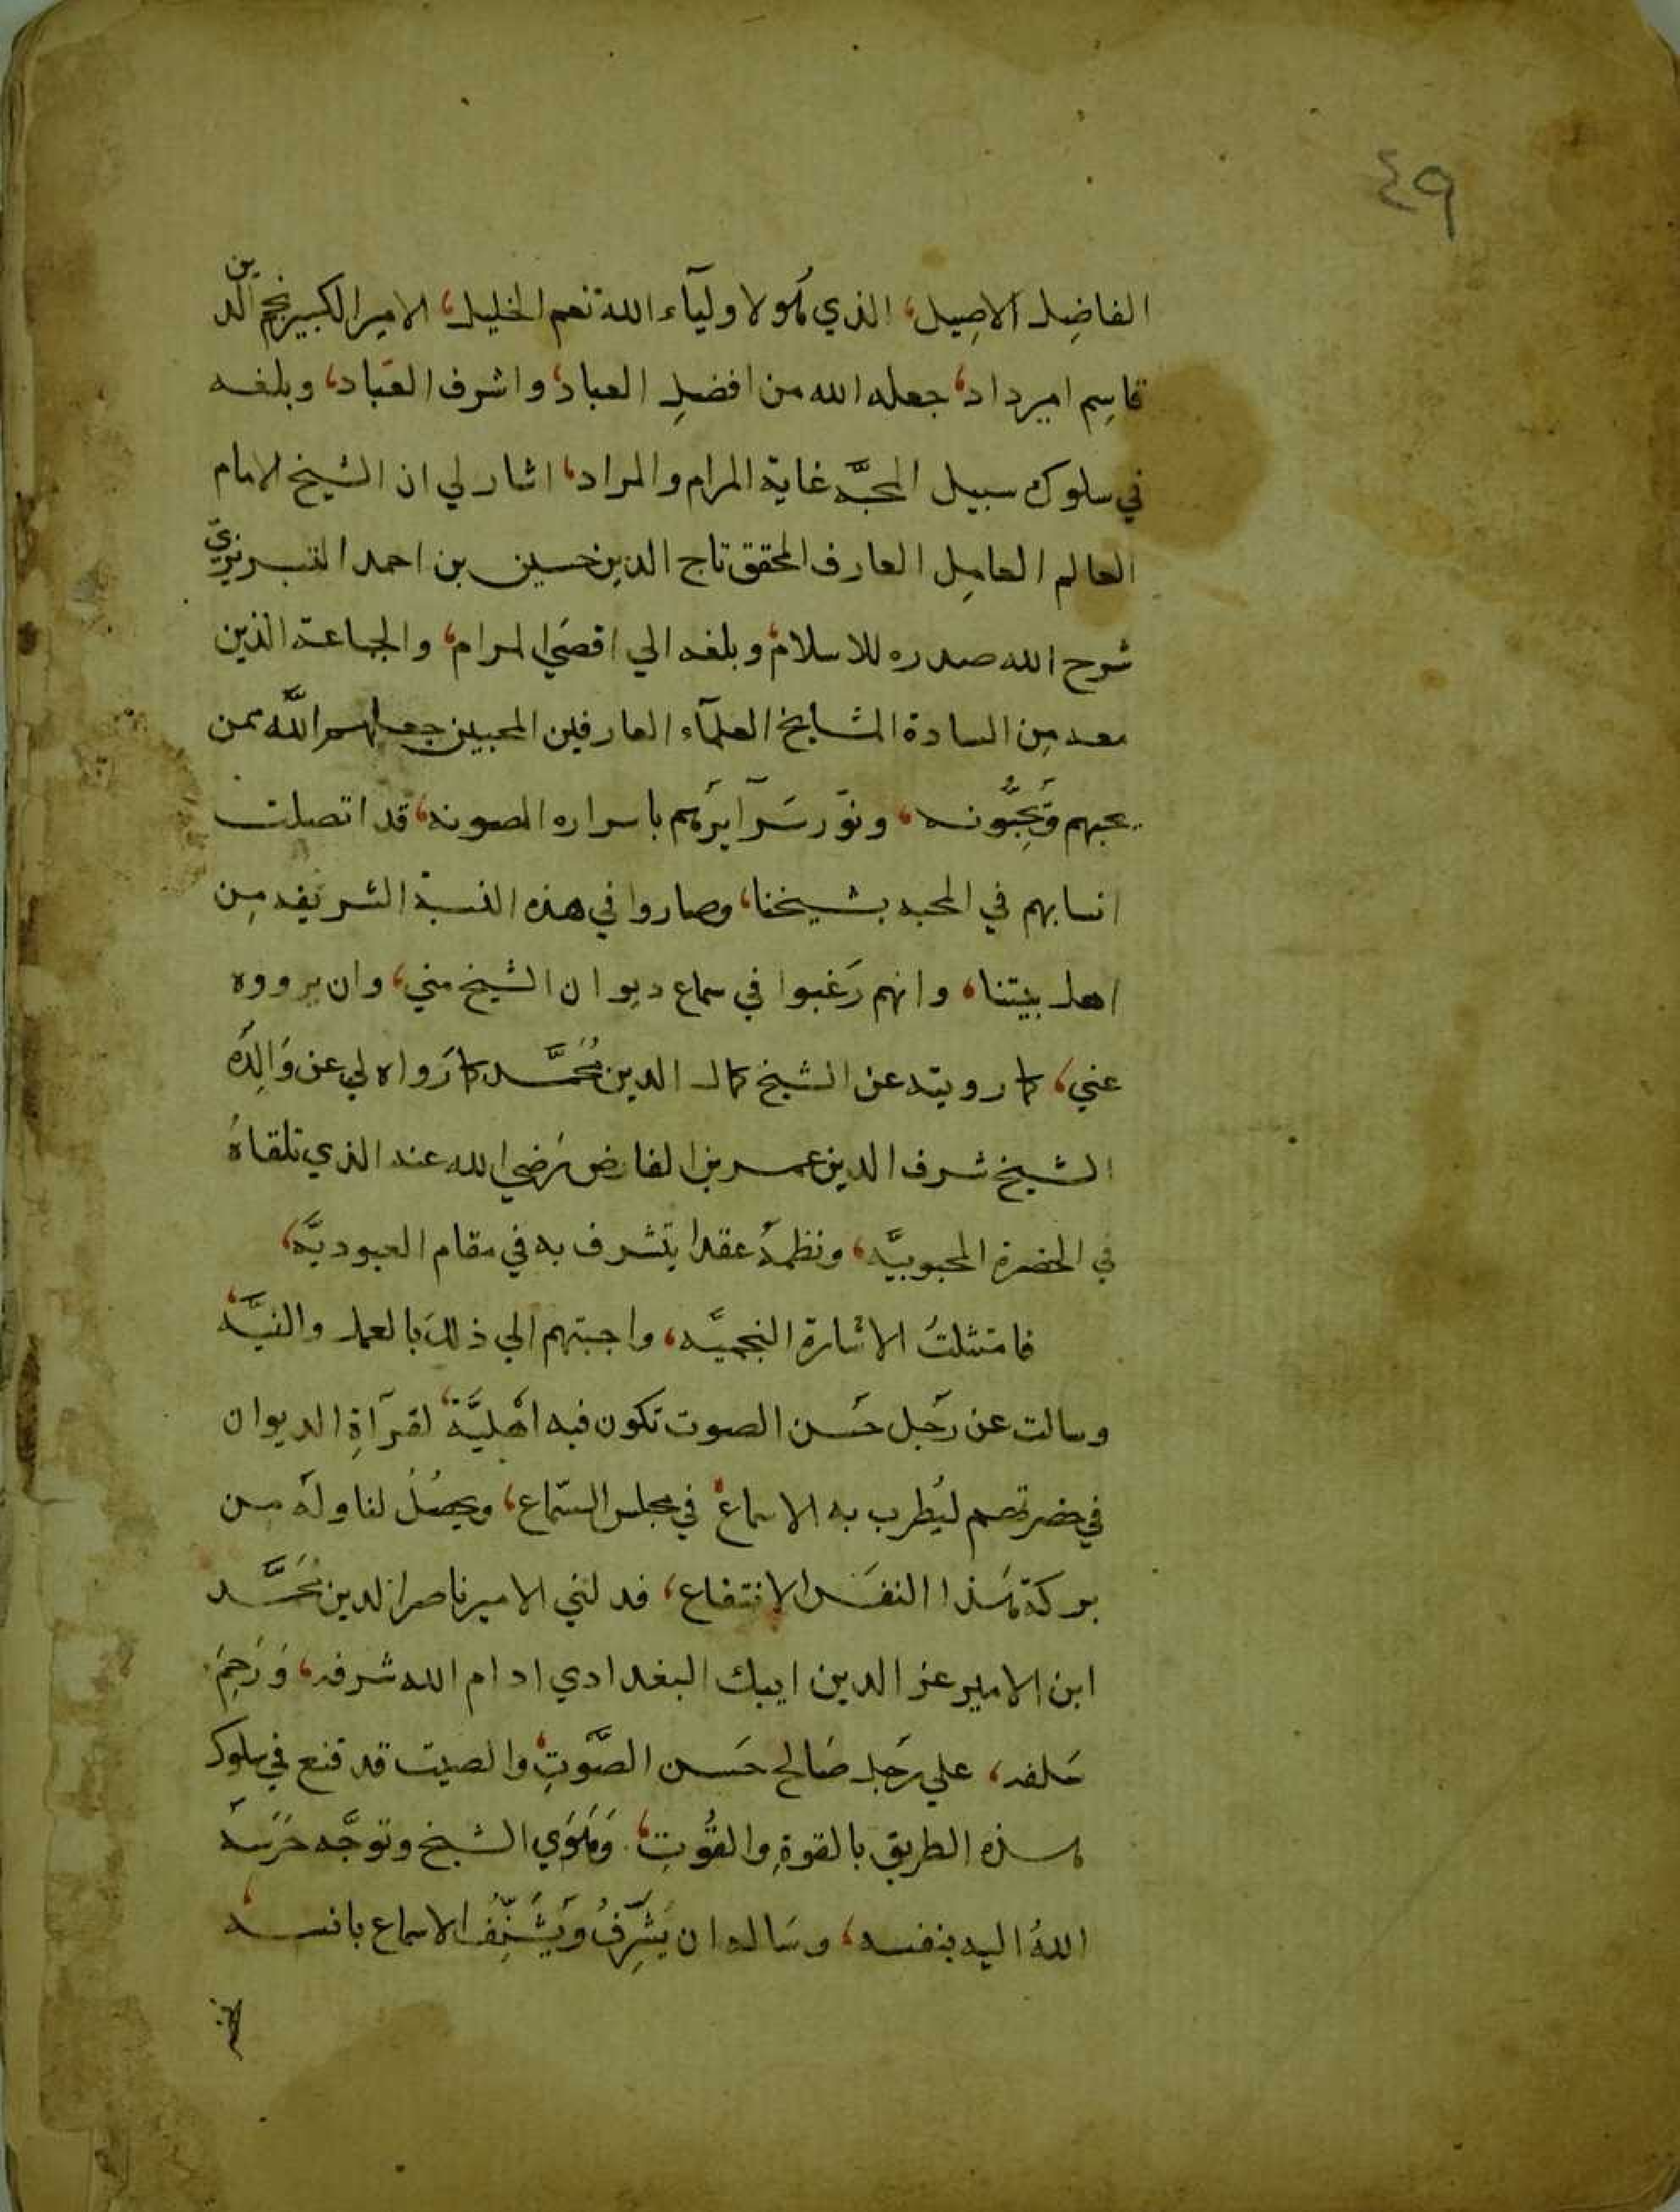 ٤٩
الفاضِل الاصِيل، الذي هُو لاوليآء الله نعم الخليل، الامير الكبير نجم الدين
قاسِم اميرداد، جعله الله من افضلِ العباد، واشرف العبّاد، وبلغه
في سلوك سبيل المحبَّه غاية المرام والمراد، اشار لي ان الشيخ الامام
العالم العامِل العارف المحقق تاج الدين حسين بن احمد التبريزيّ
شرح الله صدره للاسلام، وبلغه الي اقصَي المرام، والجماعة الذين
معه مِن السادة المشايخ العلمآء العارفين المحبين جعلهم الله ممن
يحبهم وَيُحِبُّونه، ونوّر سَرآيرَهم باسراره المصونه، قد اتصلت
انسابهم في المحبه بشيخنا، وصاروا في هذه النسبة الشريفه مِن
اهل بيتنا، وانهم رَغبوا في سماع ديوان الشيخ مني، وان يرووه
عني، كما رويته عن الشيخ كمال الدين مُحمَّد كما رَواه لي عن وَالِدَه
الشيخ شرف الدين عمر بن الفارض رَضي الله عنه الذي تلقاهُ
في الحضرة المحبوبيَّه، ونظمهُ عقدا يتشرف به في مقام العبوديَّه،
فامتثلتُ الاشارة النجميَّه، واجبتهم الي ذلك بالعمل والنيَّه،
وسالت عن رَجل حَسن الصوت تكون فيه اهْليَّة، لقرآةِ الديوان
في حضرتهم ليُطرب به الاسماع، في مجلس السَّماع، ويحصُلُ لنا وله من
بركة هَذا النفَس الانتفاع، فدلني الامير ناصر الدين مُحَمَّد
ابن الامير عز الدين ايبك البغدادي ادام الله شرفه، وَرَحِمَ
سَلفه، علي رَجل صَالح حَسن الصَّوتِ، والصيت قد قنع في سلوك
هذه الطريق بالقوةِ والقُوتِ، وَهَوَي الشيخ وتوجَّه حَرَسَهُ
اللهُ اليه بنفسه، وسَاله ان يُشَرِّفُ وَيُشَنِّفُ الاسماع بانسه،